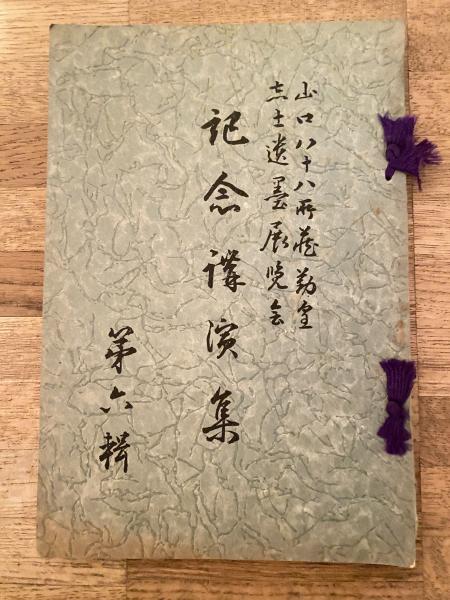 山口八十八所蔵勤皇
志士遺墨展覧会
記念講演集
第六輯